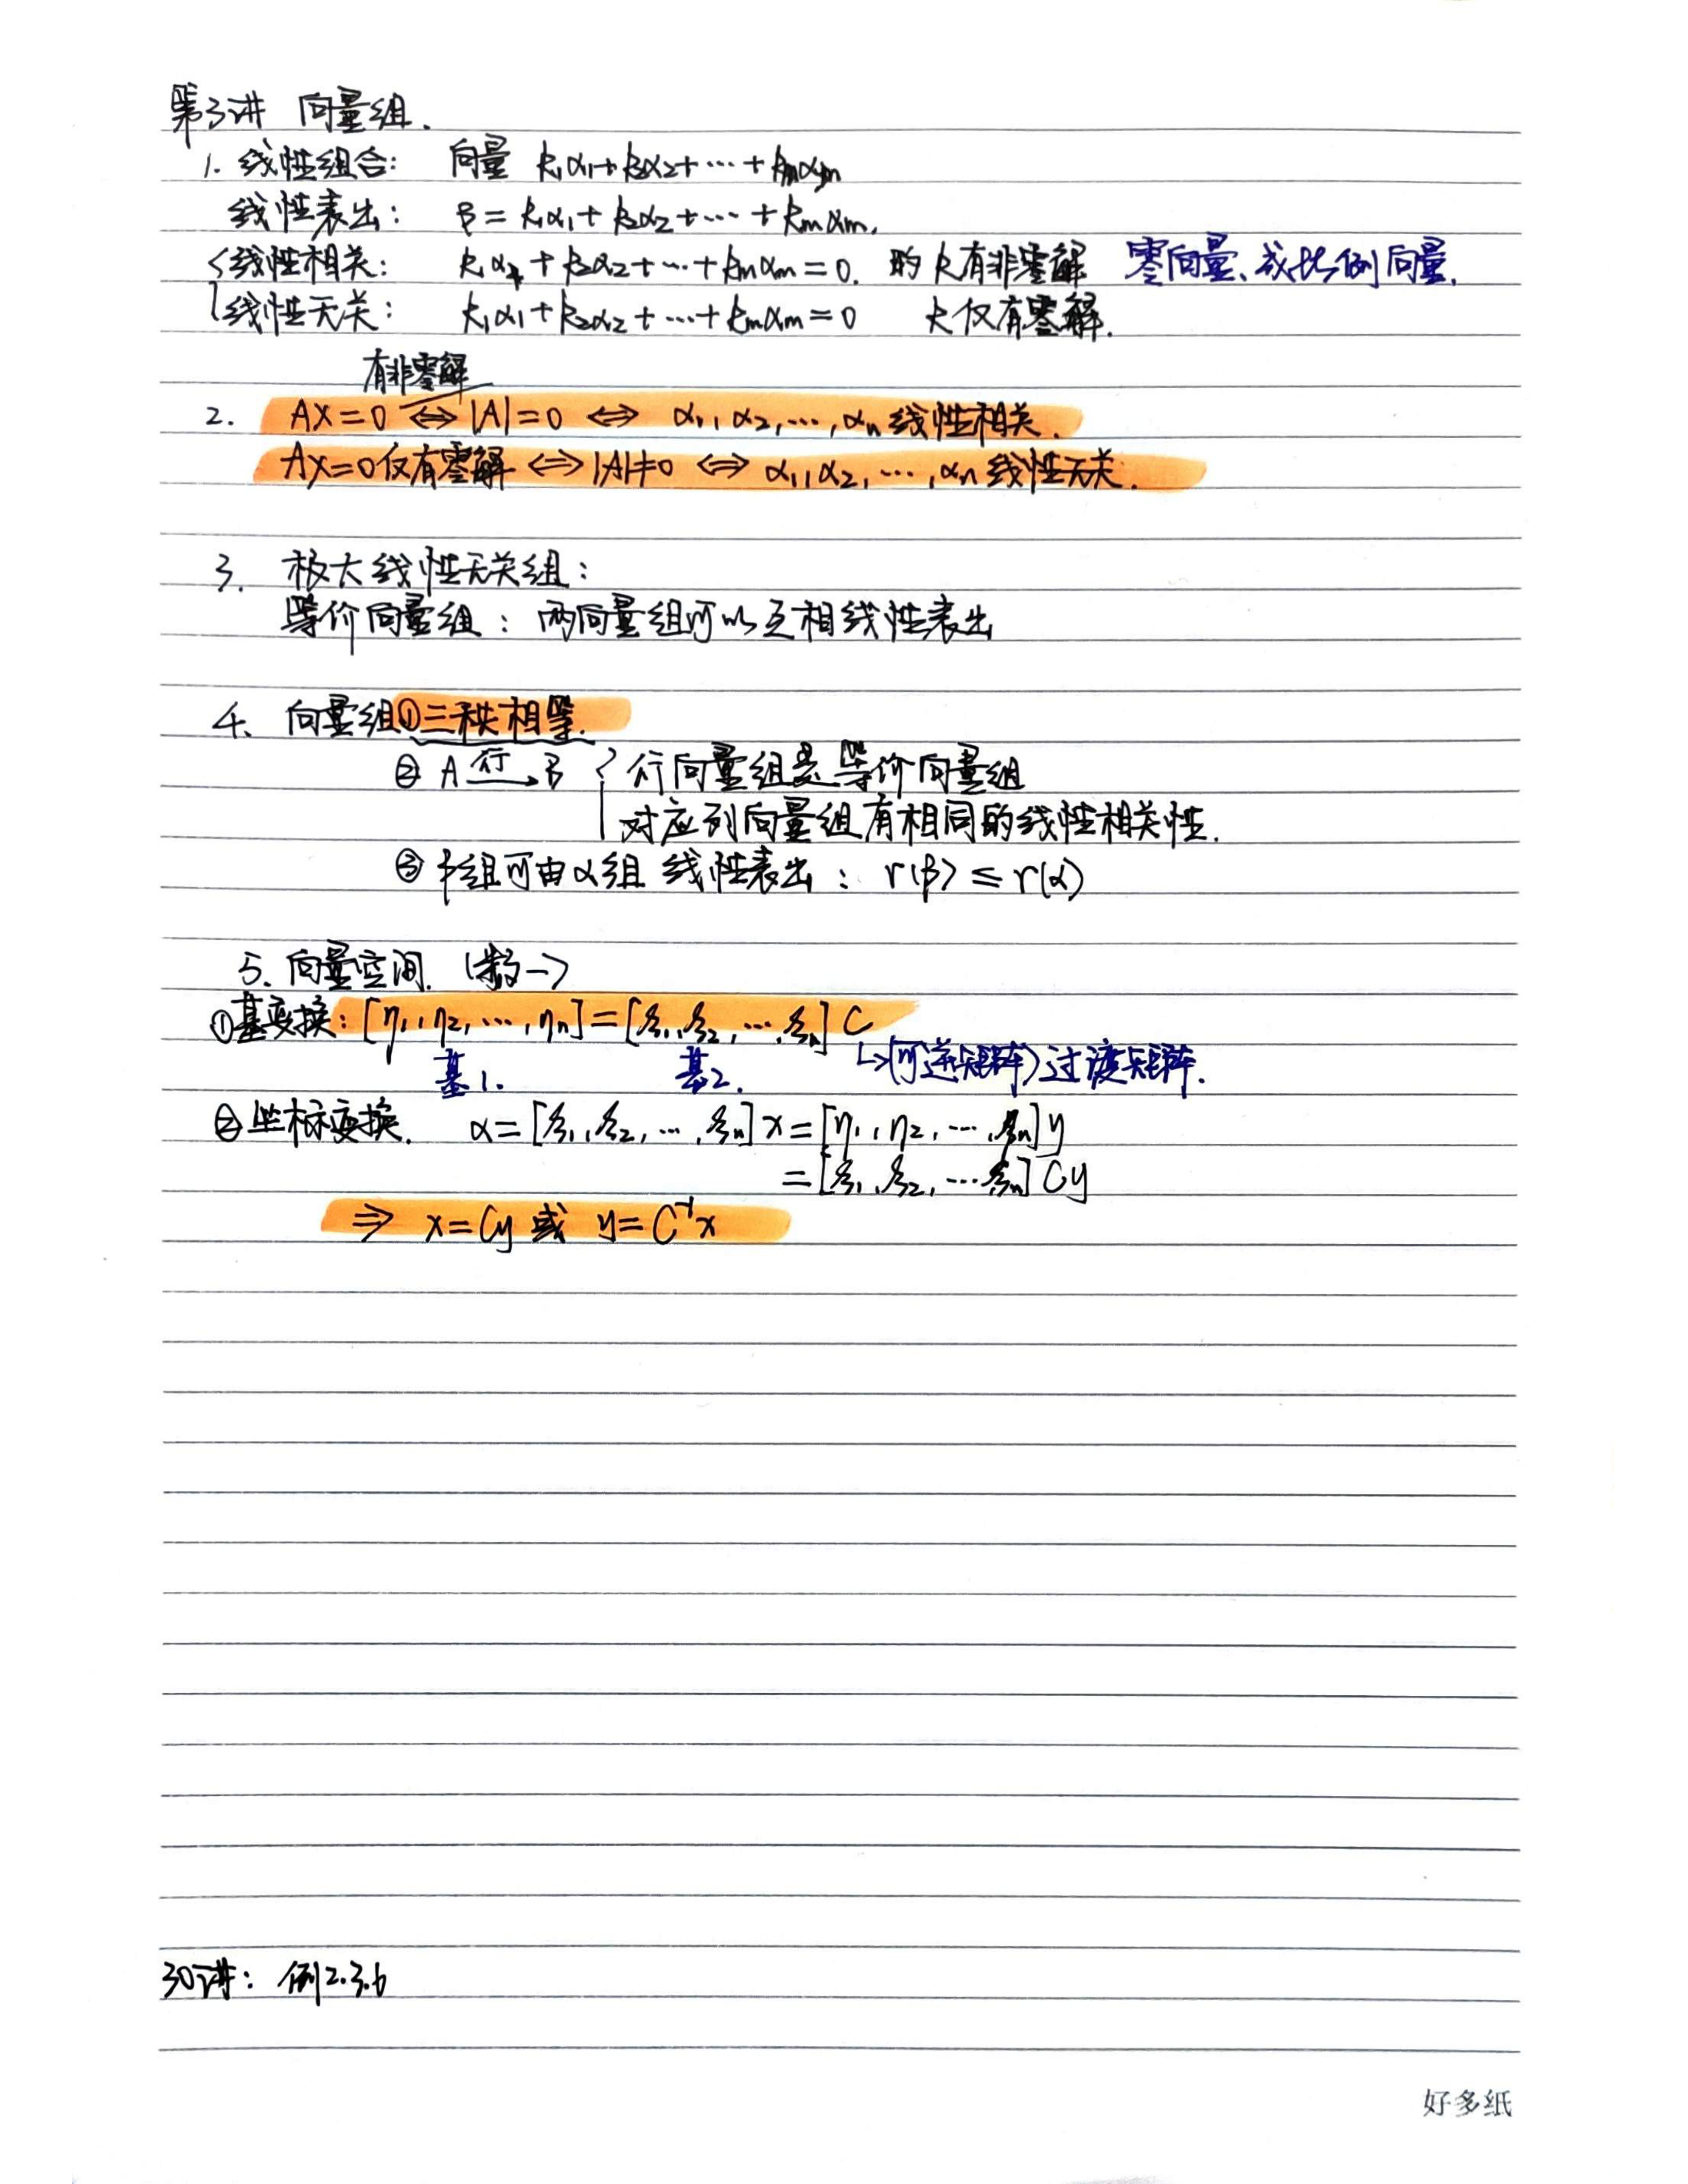 第3讲 向量组.
1. 线性组合: 向量 k₁α₁+k₂α₂+…+kₘαₘ
线性表出: β=k₁α₁+k₂α₂+…+kₘαₘ.
{线性相关: k₁α₁+k₂α₂+…+kₘαₘ=0. 的k有非零解 零向量、成比例向量.
线性无关: k₁α₁+k₂α₂+…+kₘαₘ=0 k仅有零解.
有非零解
2. AX=0 ⇔ |A|=0 ⇔ α₁,α₂,…,αₙ线性相关.
AX=0仅有零解 ⇔ |A|≠0 ⇔ α₁,α₂,…,αₙ线性无关.
3. 极大线性无关组:
等价向量组: 两向量组可以互相线性表出
4. 向量组①三秩相等.
② A 行→ B { 行向量组是等价向量组
对应列向量组有相同的线性相关性.
③ β组可由α组 线性表出: r(β)≤r(α)
5. 向量空间. (数一)
①基变换: [η₁,η₂,…,ηₙ]=[ξ₁,ξ₂,…,ξₙ]C
基1. 基2. ↳(可逆矩阵)过渡矩阵.
②坐标变换. α=[ξ₁,ξ₂,…,ξₙ]x=[η₁,η₂,…,ξₙ]y
=[ξ₁,ξ₂,…ξₙ]Cy
⇒ x=Cy 或 y=C⁻¹x
30讲: 例2.3.6
好多纸